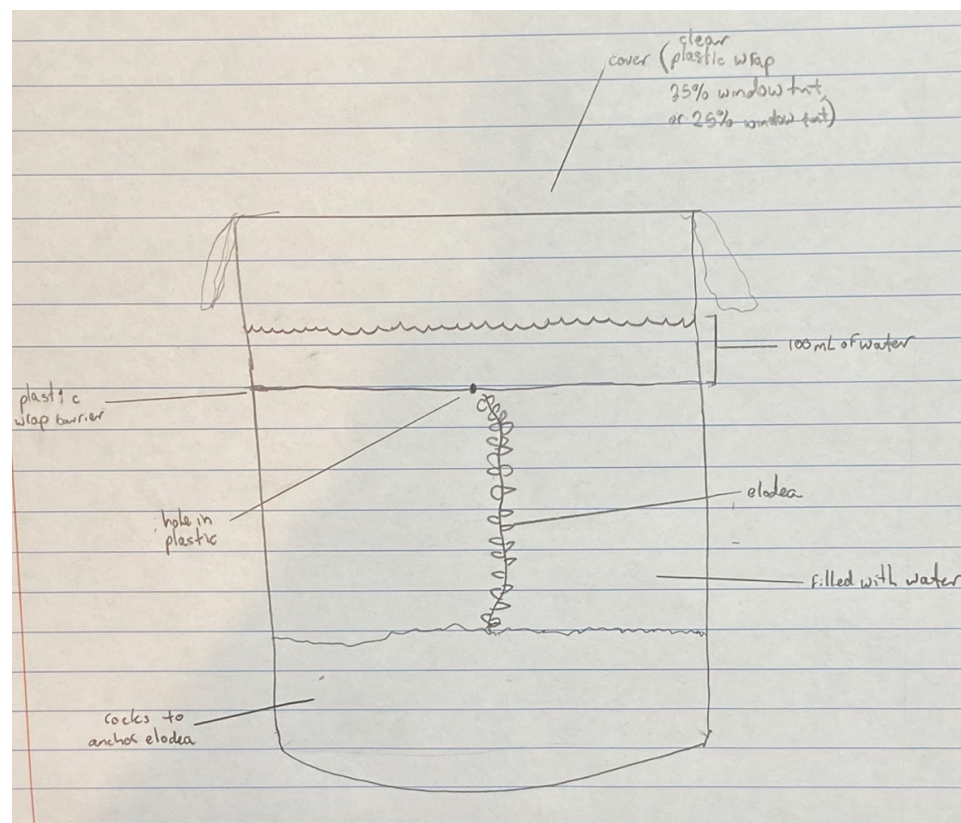 clear
cover (plastic wrap
35% window tint
or 25% window tint)
100 mL of water
plastic
wrap barrier
elodea
hole in
plastic
filled with water
rocks to
anchor elodea